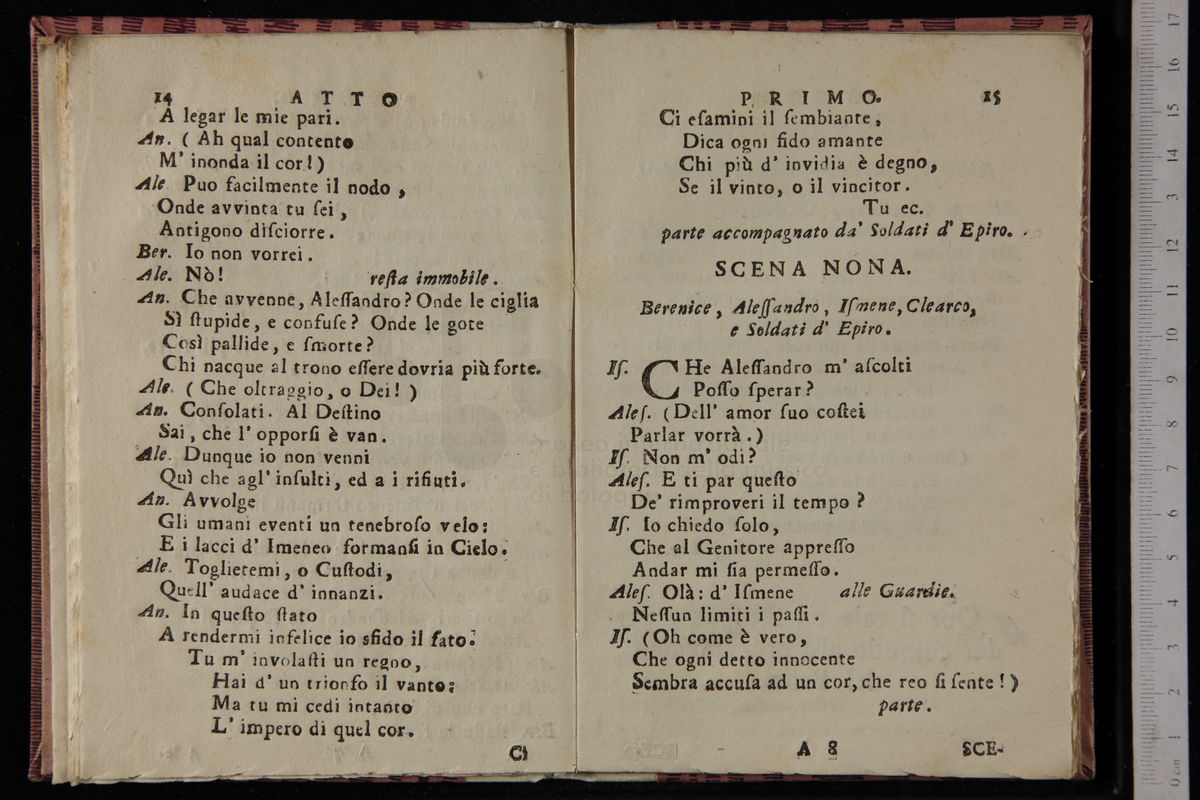 14 ATTO
A legar le mie pari.
An. ( Ah qual contento
M' inonda il cor! )
Ale. Puo facilmente il nodo ,
Onde avvinta tu ſei ,
Antigono diſciorre.
Ber. Io non vorrei.
Ale. Nò! reſta immobile.
An. Che avvenne, Aleſſandro? Onde le ciglia
Sì ſtupide, e confuſe? Onde le gote
Così pallide, e ſmorte?
Chi nacque al trono eſſere dovria più forte.
Ale. ( Che oltraggio, o Dei! )
An. Conſolati. Al Deſtino
Sai, che l' opporſi è van.
Ale. Dunque io non venni
Quì che agl' inſulti, ed a i rifiuti.
An. Avvolge
Gli umani eventi un tenebroſo velo:
E i lacci d' Imeneo formanſi in Cielo.
Ale. Toglietemi, o Cuſtodi,
Quell' audace d' innanzi.
An. In queſto ſtato
A rendermi infelice io sfido il fato.
Tu m' involaſti un regno,
Hai d' un trionfo il vanto;
Ma tu mi cedi intanto
L' impero di quel cor.
Ci
PRIMO. 15
Ci eſamini il ſembiante,
Dica ogni fido amante
Chi più d' invidia è degno,
Se il vinto, o il vincitor.
Tu ec.
parte accompagnato da' Soldati d' Epiro.
SCENA NONA.
Berenice, Aleſſandro, Iſmene, Clearco,
e Soldati d' Epiro.
Iſ. CHe Aleſſandro m' aſcolti
Poſſo ſperar?
Aleſ. (Dell' amor ſuo coſtei
Parlar vorrà.)
Iſ. Non m' odi?
Aleſ. E ti par queſto
De' rimproveri il tempo?
Iſ. Io chiedo ſolo,
Che al Genitore appreſſo
Andar mi ſia permeſſo.
Aleſ. Olà: d' Iſmene alle Guardie.
Neſſun limiti i paſſi.
Iſ. (Oh come è vero,
Che ogni detto innocente
Sembra accuſa ad un cor, che reo ſi ſente!)
parte.
A 8 SCE-